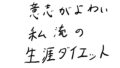 意志がよわい
私流の
生涯ダイエット